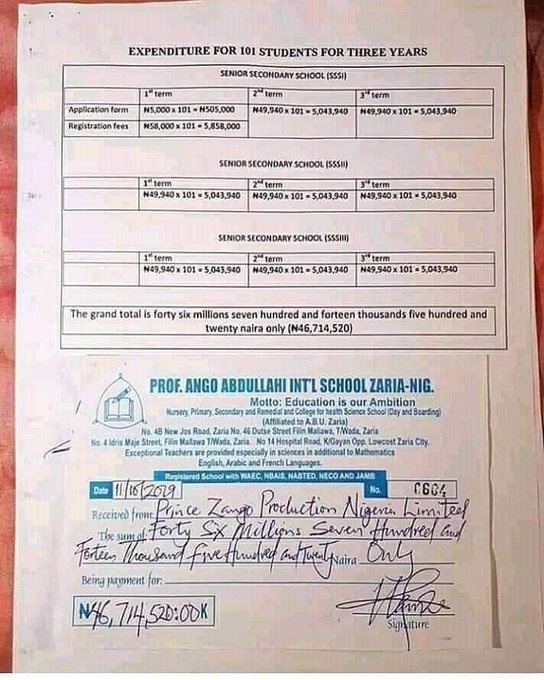 EXPENDITURE FOR 101 STUDENTS FOR THREE YEARS
SENIOR SECONDARY SCHOOL (SSSI)
1st term 2nd term 3rd term
Application form ₦5,000 x 101 = ₦505,000 ₦49,940 x 101 = 5,043,940 ₦49,940 x 101 = 5,043,940
Registration fees ₦58,000 x 101 = 5,858,000
SENIOR SECONDARY SCHOOL (SSSII)
1st term 2nd term 3rd term
₦49,940 x 101 = 5,043,940 ₦49,940 x 101 = 5,043,940 ₦49,940 x 101 = 5,043,940
SENIOR SECONDARY SCHOOL (SSSIII)
1st term 2nd term 3rd term
₦49,940 x 101 = 5,043,940 ₦49,940 x 101 = 5,043,940 ₦49,940 x 101 = 5,043,940
The grand total is forty six millions seven hundred and forteen thousands five hundred and
twenty naira only (₦46,714,520)
PROF. ANGO ABDULLAHI INT'L SCHOOL ZARIA-NIG.
Motto: Education is our Ambition
Nursery, Primary, Secondary and Remedial and College for health Science School (Day and Boarding)
(Affiliated to A.B.U. Zaria)
No. 4B New Jos Road, Zaria No. 46 Dutse Street Filin Mallawa, T/Wada, Zaria
No. 4 Idris Maje Street, Filin Mallawa T/Wada, Zaria. No 14 Hospital Road, K/Gayan Opp. Lowcost Zaria City.
Exceptional Teachers are provided especially in sciences in additional to Mathematics
English, Arabic and French Languages.
Registered School with WAEC, NBAIS, NABTED, NECO AND JAMB
Date 11/10/2019 No. 0604
Received from: Prince Zango Production Nigeria Limited
The sum of: Forty Six Millions Seven Hundred and
Forteen Thousand Five Hundred and Twenty Naira Only
Being payment for:
₦46,714,520:00K
Signature